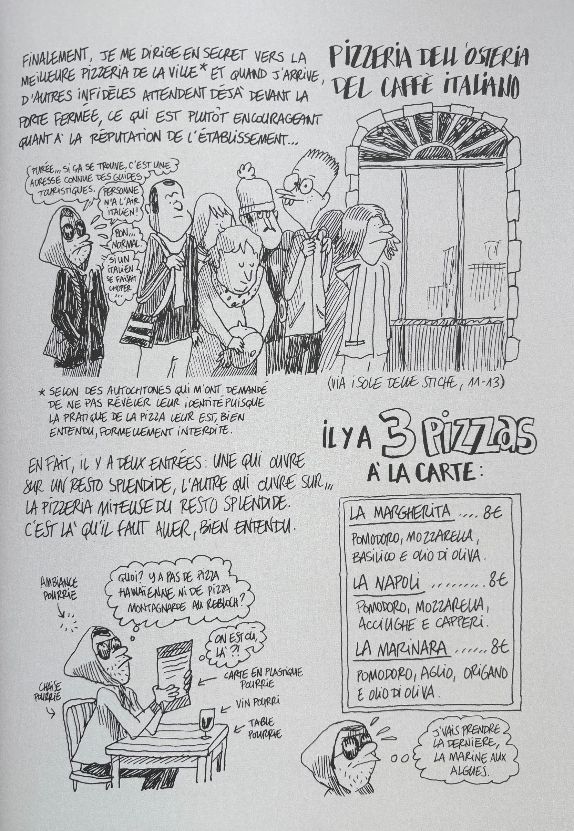 FINALEMENT, JE ME DIRIGE EN SECRET VERS LA
MEILLEURE PIZZERIA DE LA VILLE* ET QUAND J'ARRIVE,
D'AUTRES INFIDÈLES ATTENDENT DÉJÀ DEVANT LA
PORTE FERMÉE, CE QUI EST PLUTÔT ENCOURAGEANT
QUANT À LA RÉPUTATION DE L'ÉTABLISSEMENT...
PIZZERIA DELL'OSTERIA
DEL CAFFÈ ITALIANO
PURÉE... SI ÇA SE TROUVE, C'EST UNE
ADRESSE CONNUE DES GUIDES
TOURISTIQUES.
PERSONNE
N'A L'AIR
ITALIEN!
BON...
NORMAL
SI UN
ITALIEN
SE FAISAIT
CHOPER
...
(VIA ISOLE DELLE STICHE, 11-13)
* SELON DES AUTOCHTONES QUI M'ONT DEMANDÉ
DE NE PAS RÉVÉLER LEUR IDENTITÉ PUISQUE
LA PRATIQUE DE LA PIZZA LEUR EST, BIEN
ENTENDU, FORMELLEMENT INTERDITE.
EN FAIT, IL Y A DEUX ENTRÉES: UNE QUI OUVRE
SUR UN RESTO SPLENDIDE, L'AUTRE QUI OUVRE SUR...
LA PIZZERIA MITEUSE DU RESTO SPLENDIDE.
C'EST LÀ QU'IL FAUT ALLER, BIEN ENTENDU.
IL Y A 3 PIZZAS
À LA CARTE:
LA MARGHERITA .... 8€
POMODORO, MOZZARELLA,
BASILICO E OLIO DI OLIVA.
LA NAPOLI ......... 8€
POMODORO, MOZZARELLA,
ACCIUGHE E CAPPERI.
LA MARINARA ...... 8€
POMODORO, AGLIO, ORIGANO
E OLIO DI OLIVA.
AMBIANCE
POURRIE
QUOI? Y A PAS DE PIZZA
HAWAÏENNE NI DE PIZZA
MONTAGNARDE AU REBLOCH?
ON EST OÙ,
LÀ?!
CARTE EN PLASTIQUE
POURRIE
CHAISE
POURRIE
VIN POURRI
TABLE
POURRIE
J'VAIS PRENDRE
LA DERNIÈRE,
LA MARINE AUX
ALGUES.